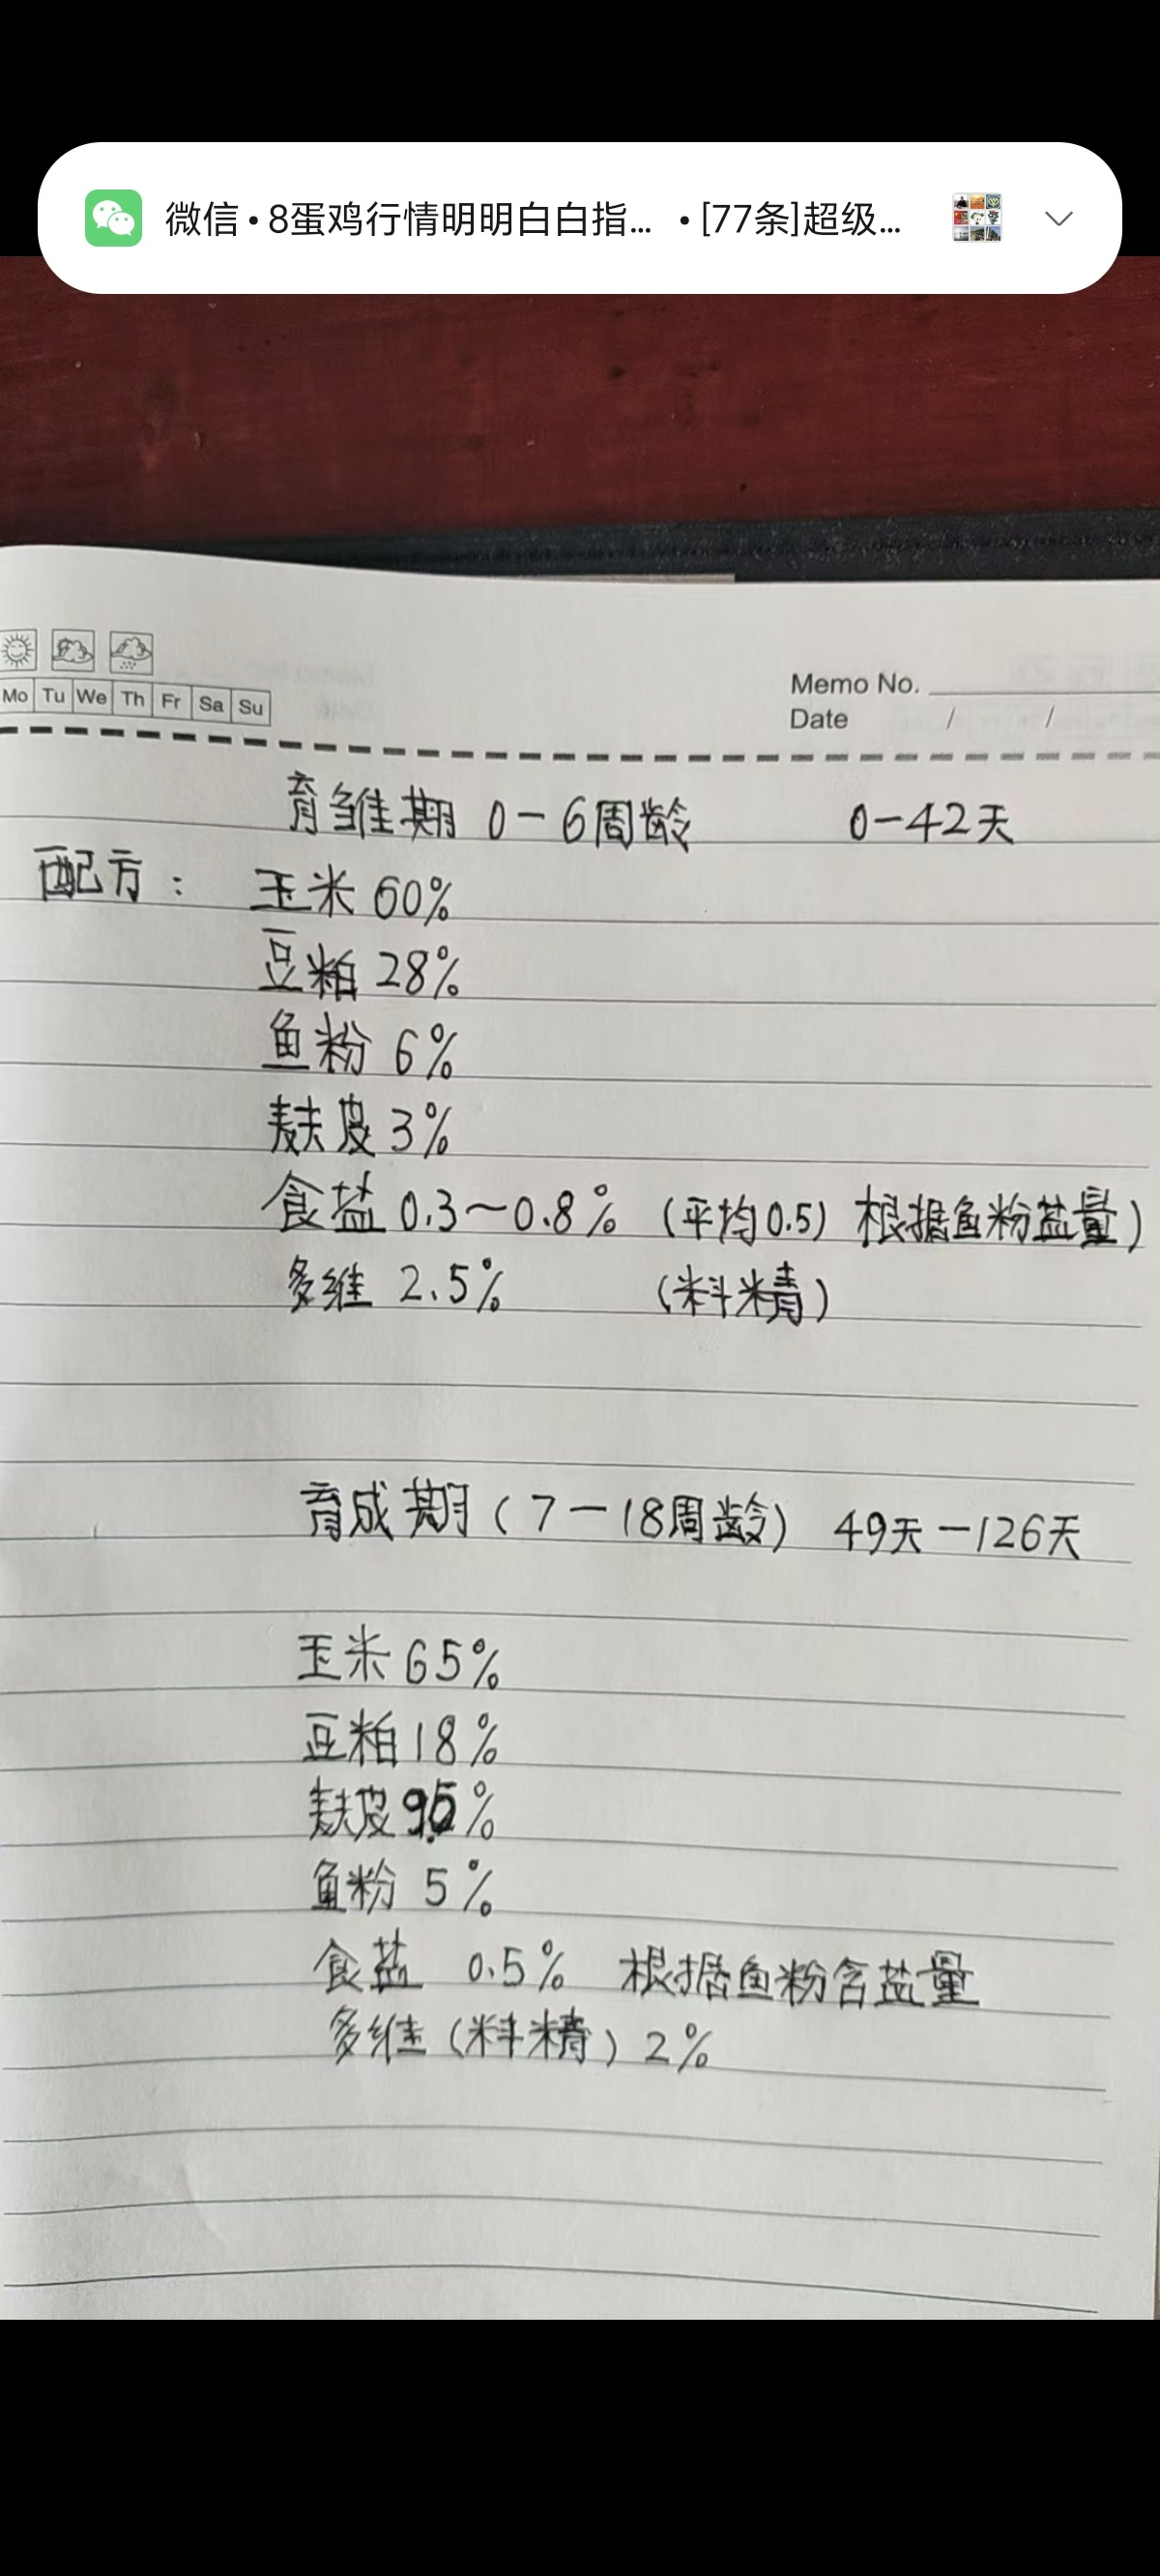 微信 • 8蛋鸡行情明明白白指... • [77条]超级...
Mo Tu We Th Fr Sa Su
Memo No.
Date / /
育雏期 0-6周龄 0-42天
配方: 玉米 60%
豆粕 28%
鱼粉 6%
麸皮 3%
食盐 0.3～0.8% (平均0.5) 根据鱼粉盐量)
多维 2.5% (料精)
育成期(7-18周龄) 49天-126天
玉米 65%
豆粕 18%
麸皮 9.5%
鱼粉 5%
食盐 0.5% 根据鱼粉含盐量
多维(料精) 2%